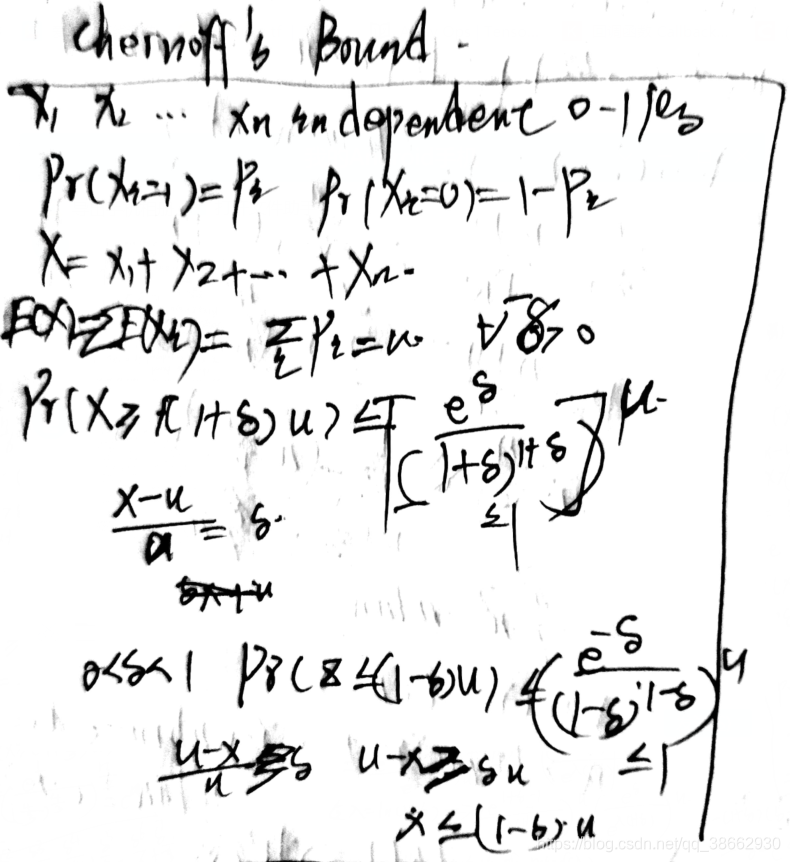 Chernoff's Bound.
X₁ X₂ ... Xn independent 0-1
Pr(Xi=1)=Pi Pr(Xi=0)=1-Pi
X= X₁+ X₂+... +Xn.
E(X)=ΣE(Xi)= Σi Pi=u. ∀ δ>0
Pr(X≥(1+δ)u) ≤ [e^δ / (1+δ)^(1+δ)]^μ.
≤1
(X-u)/u = δ.
0<δ<1 Pr(X≤(1-δ)u) ≤ (e^-δ / (1-δ)^(1-δ))^u
≤1
(u-x)/u ≥ δ u-x≥δu
x≤(1-δ)·u
https://blog.csdn.net/qq_38662930